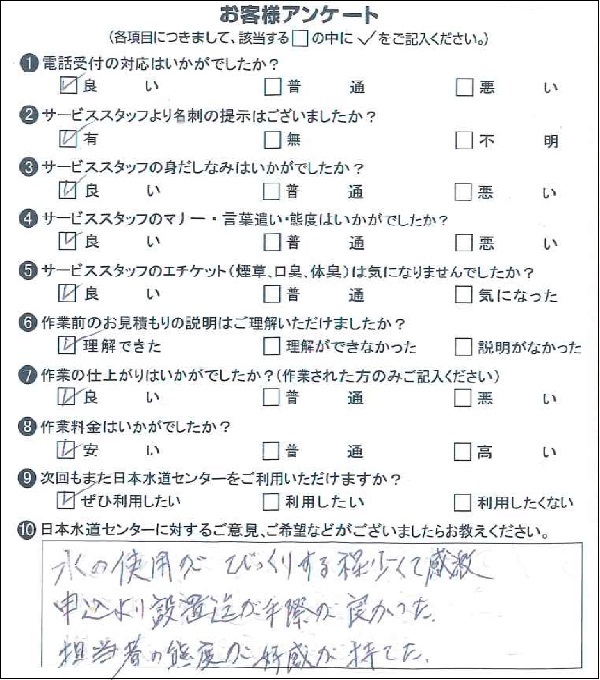 お客様アンケート
（各項目につきまして、該当する□の中に✓をご記入ください。）
❶ 電話受付の対応はいかがでしたか？
☑良い □普通 □悪い
❷ サービススタッフより名刺の提示はございましたか？
☑有 □無 □不明
❸ サービススタッフの身だしなみはいかがでしたか？
☑良い □普通 □悪い
❹ サービススタッフのマナー・言葉遣い・態度はいかがでしたか？
☑良い □普通 □悪い
❺ サービススタッフのエチケット（煙草、口臭、体臭）は気になりませんでしたか？
☑良い □普通 □気になった
❻ 作業前のお見積もりの説明はご理解いただけましたか？
☑理解できた □理解ができなかった □説明がなかった
❼ 作業の仕上がりはいかがでしたか？（作業された方のみご記入ください）
☑良い □普通 □悪い
❽ 作業料金はいかがでしたか？
☑安い □普通 □高い
❾ 次回もまた日本水道センターをご利用いただけますか？
☑ぜひ利用したい □利用したい □利用したくない
❿ 日本水道センターに対するご意見、ご希望などがございましたらお教えください。
水の使用がびっくりする程少くて感激
申込より設置迄が手際が良かった。
担当者の態度が好感が持てた。